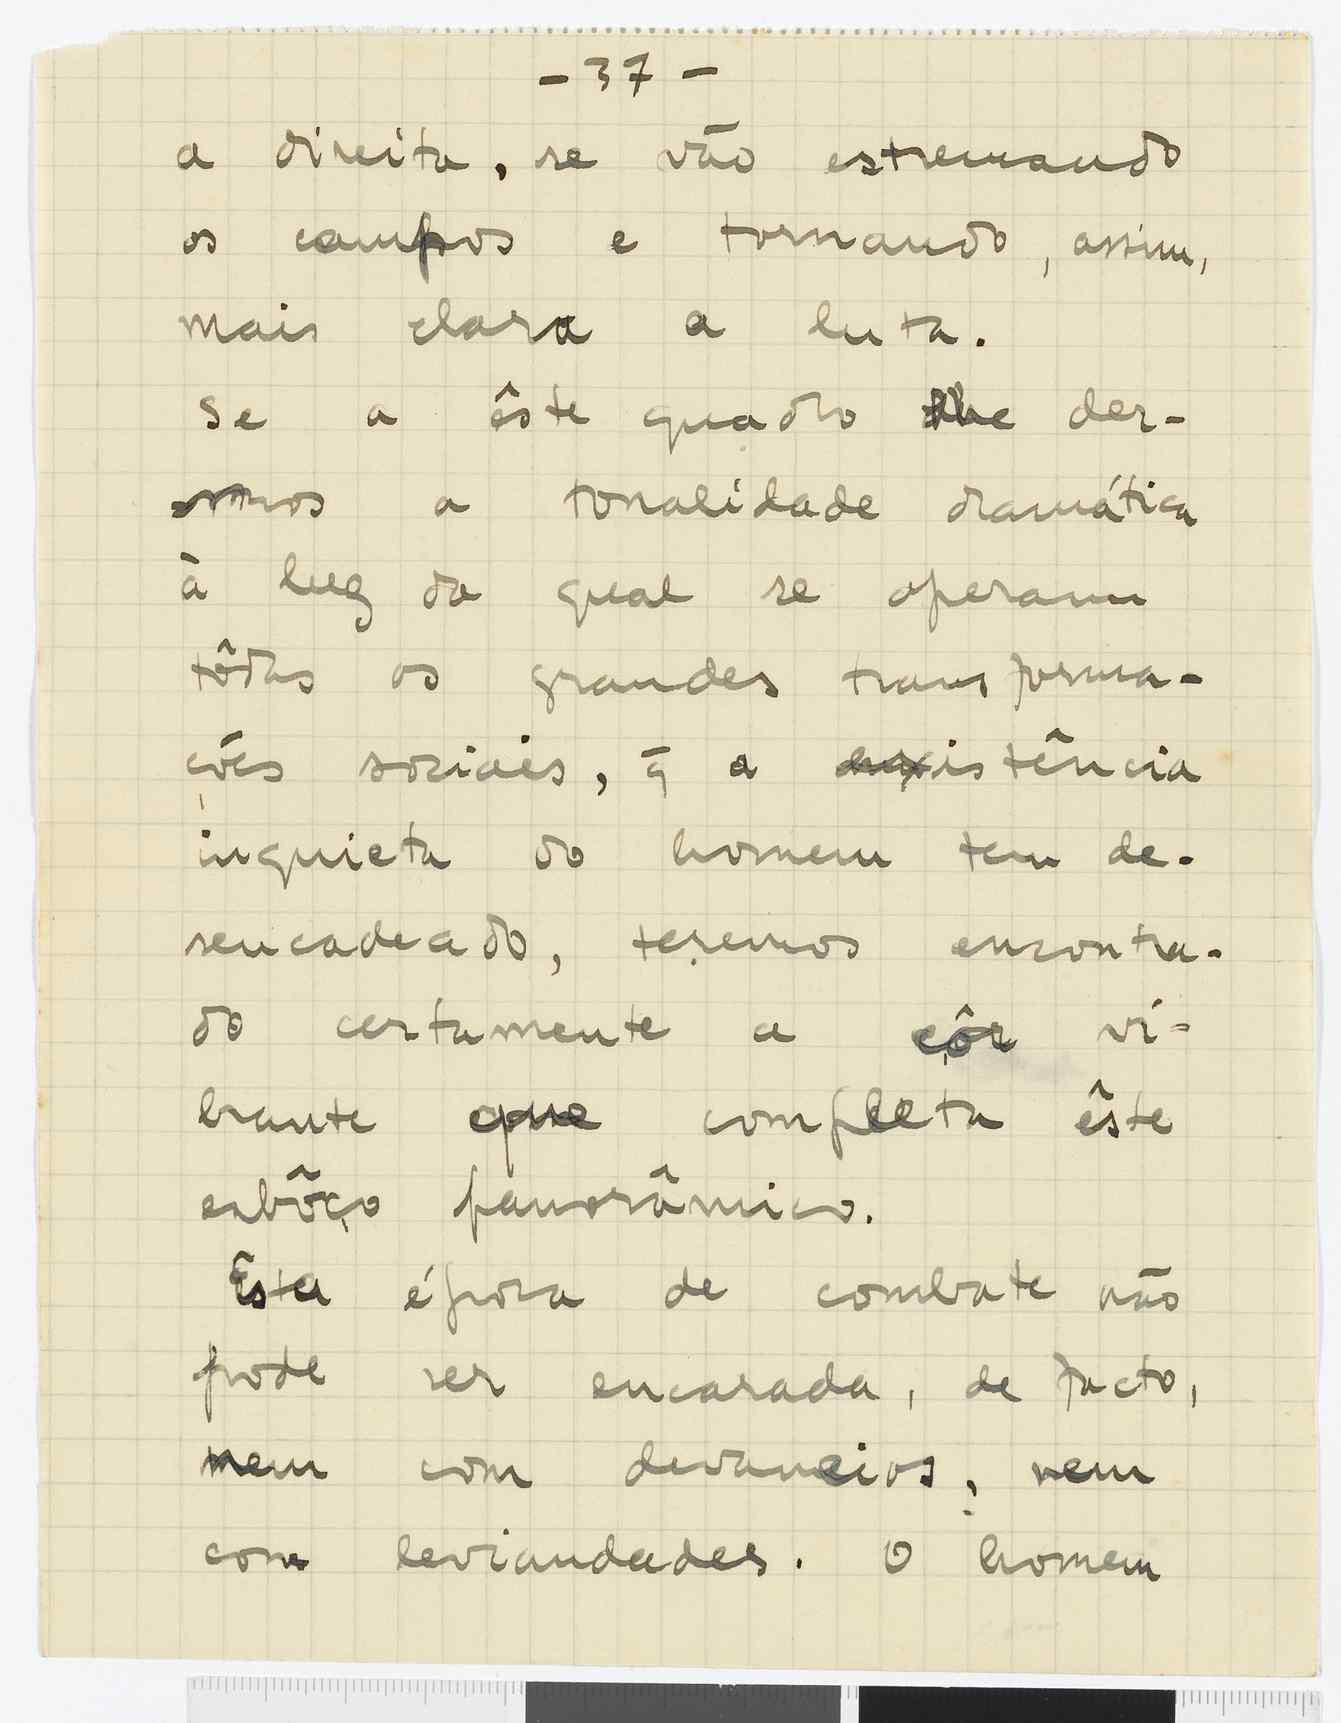 - 37 -
a direita, se vão estremando
os campos e tornando, assim,
mais clara a luta.
Se a êste quadro lhe der-
mos a tonalidade dramática
à luz da qual se operam
tôdas as grandes transforma-
ções sociais, q̄ a existência
inquieta do homem tem de-
sencadeado, teremos encontra-
do certamente a côr vi-
brante que completa êste
esbôço panorâmico.
Esta época de combate não
pode ser encarada, de facto,
nem com devaneios, nem
com leviandades. O homem